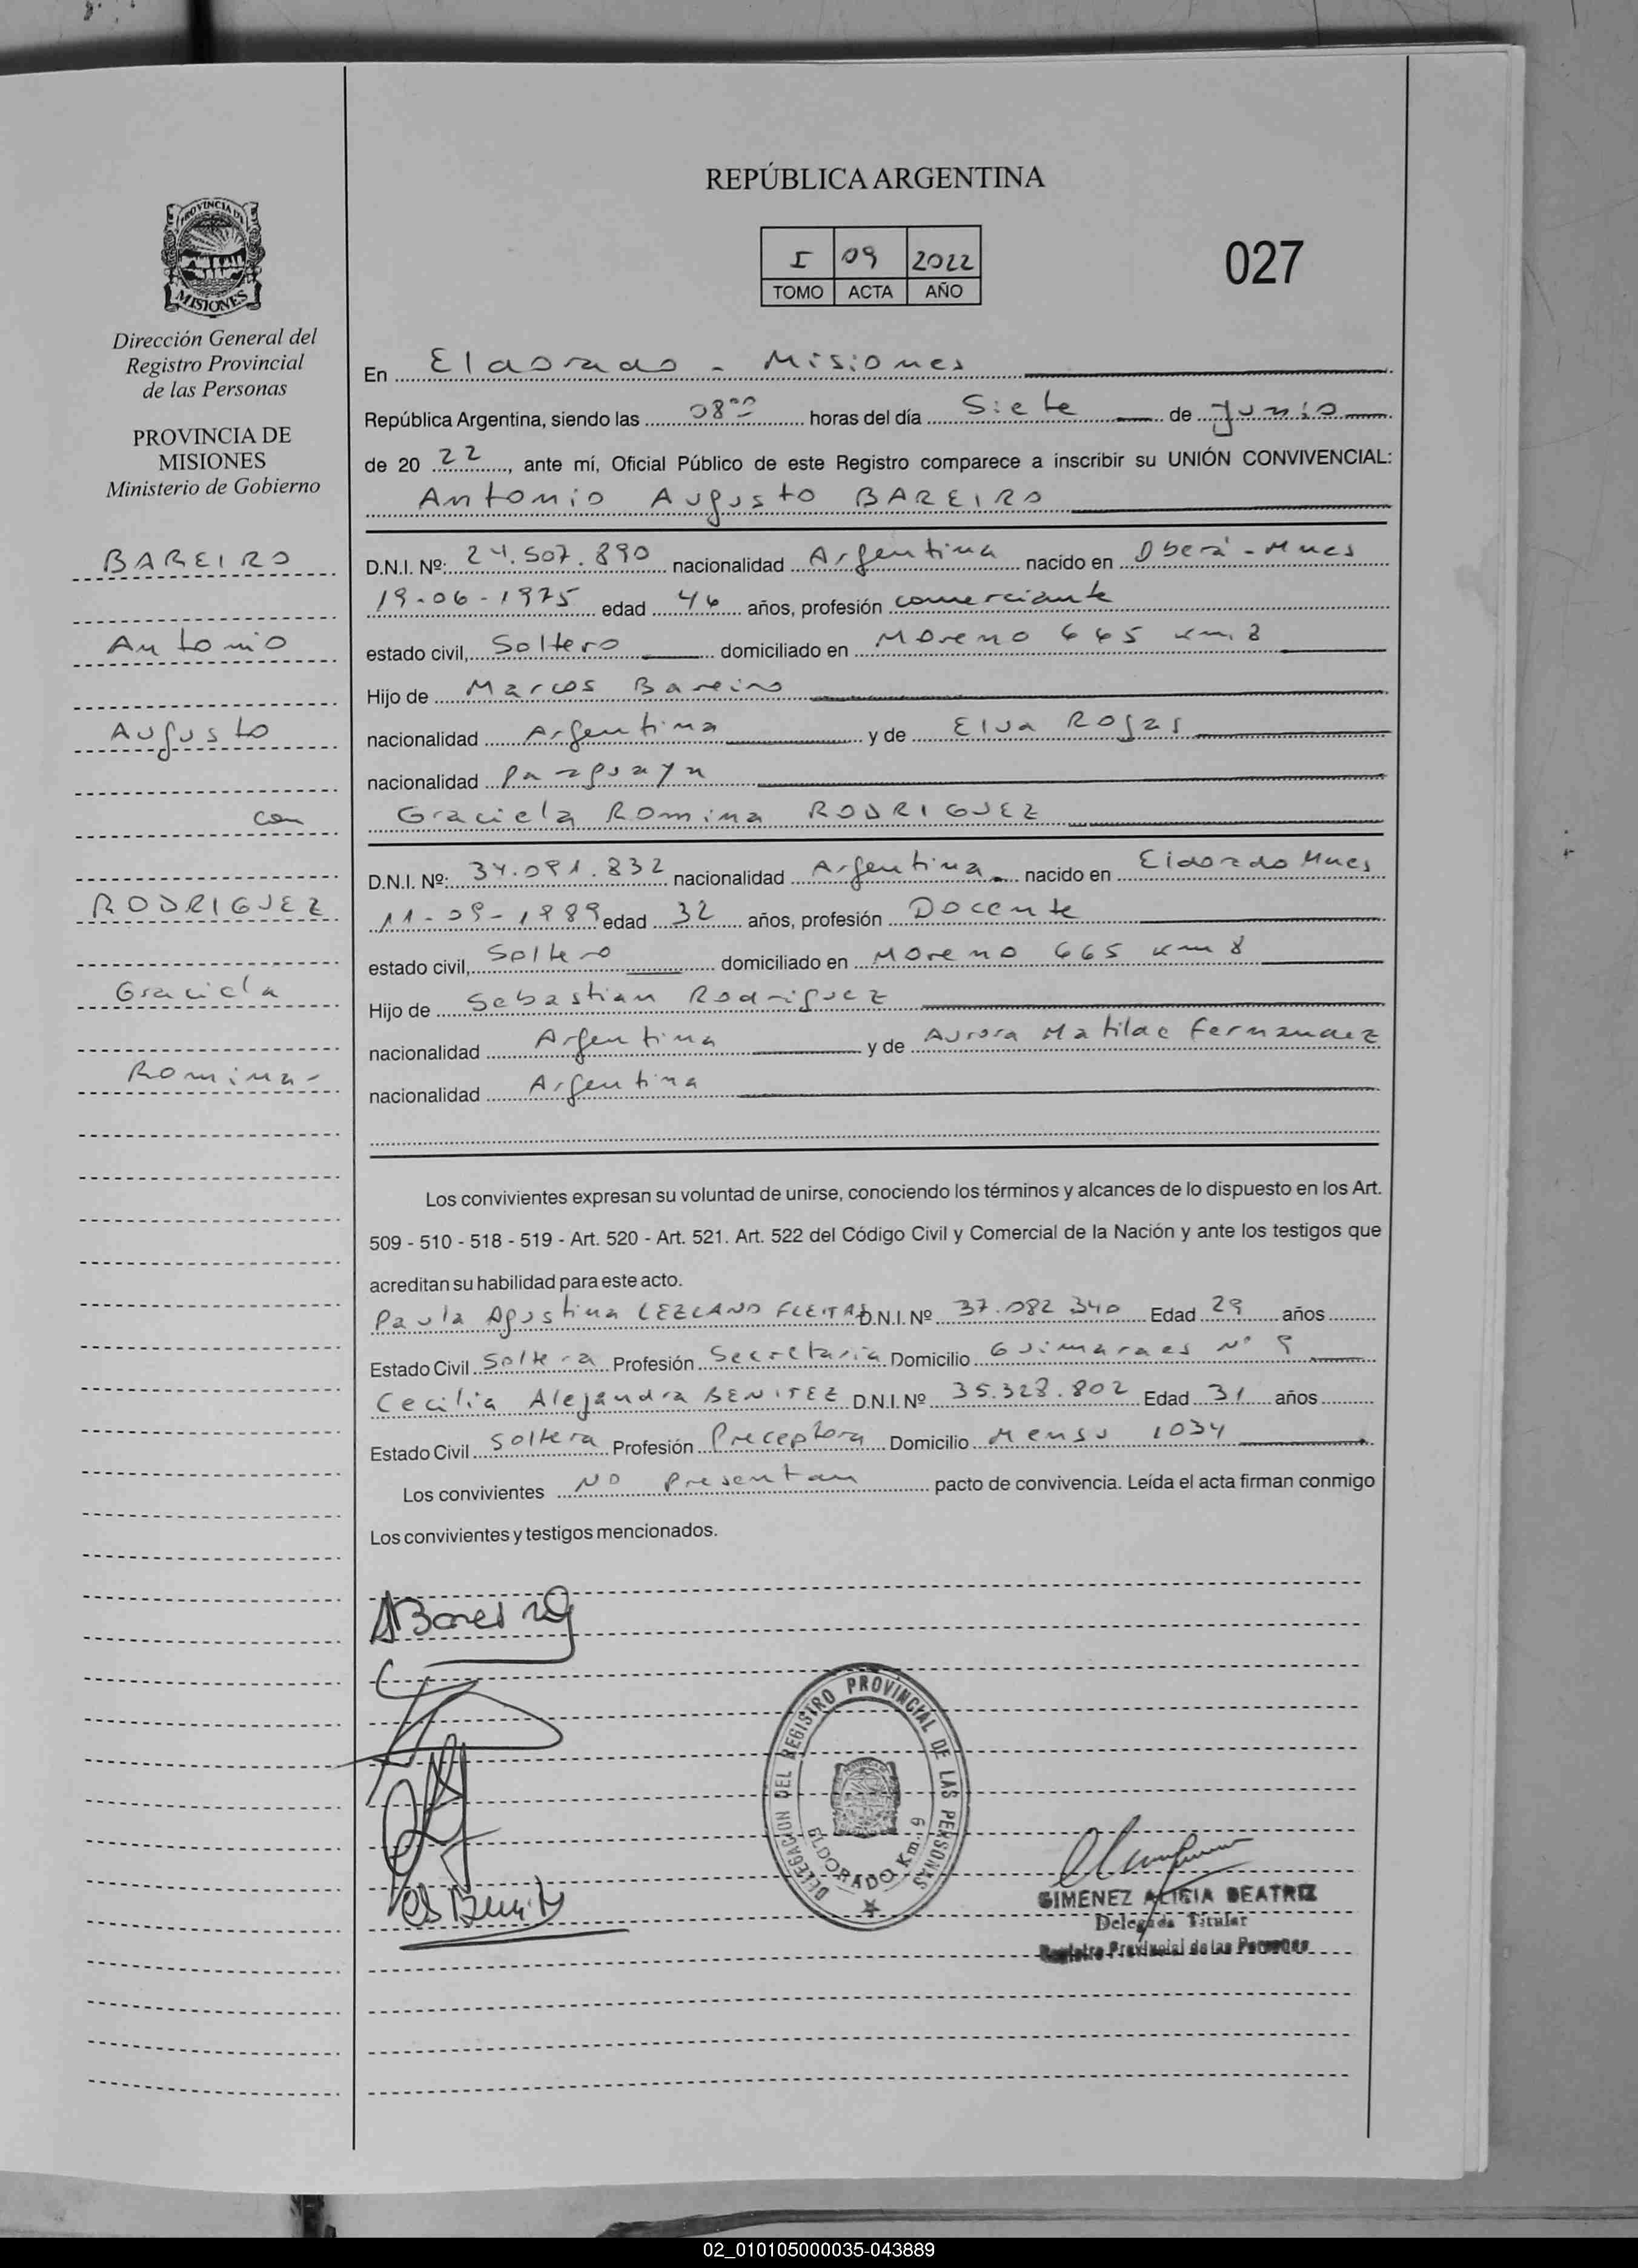 REPÚBLICA ARGENTINA
I 09 2022
TOMO ACTA AÑO
027
PROVINCIA DE
MISIONES
Dirección General del
Registro Provincial
de las Personas
PROVINCIA DE
MISIONES
Ministerio de Gobierno
BAREIRO
Antonio
Augusto
con
RODRIGUEZ
Graciela
Romina-
En Eldorado - Misiones
República Argentina, siendo las 08⁰⁰ horas del día Siete de Junio
de 20 22, ante mí, Oficial Público de este Registro comparece a inscribir su UNIÓN CONVIVENCIAL:
Antonio Augusto BAREIRO
D.N.I. Nº: 24.507.890 nacionalidad Argentina nacido en Oberá - Mnes
19-06-1975 edad 46 años, profesión comerciante
estado civil, Soltero domiciliado en Moreno 665 km. 8
Hijo de Marcos Bareiro
nacionalidad Argentina y de Elva Rojas
nacionalidad Paraguaya
Graciela Romina RODRIGUEZ
D.N.I. Nº: 34.091.832 nacionalidad Argentina nacido en Eldorado Mnes
11-09-1989 edad 32 años, profesión Docente
estado civil, Soltero domiciliado en Moreno 665 km 8
Hijo de Sebastian Rodriguez
nacionalidad Argentina y de Aurora Matilde Fernandez
nacionalidad Argentina
Los convivientes expresan su voluntad de unirse, conociendo los términos y alcances de lo dispuesto en los Art.
509 - 510 - 518 - 519 - Art. 520 - Art. 521. Art. 522 del Código Civil y Comercial de la Nación y ante los testigos que
acreditan su habilidad para este acto.
Paula Agustina LEZCANO FLEITAS D.N.I. Nº 37.082.340 Edad 29 años
Estado Civil Soltera Profesión Secretaria Domicilio Guimaraes Nº 9
Cecilia Alejandra BENITEZ D.N.I. Nº 35.328.802 Edad 31 años
Estado Civil Soltera Profesión Preceptora Domicilio Mensu 1034
Los convivientes no presentan pacto de convivencia. Leída el acta firman conmigo
Los convivientes y testigos mencionados.
DELEGACION DEL REGISTRO PROVINCIAL DE LAS PERSONAS
ELDORADO Km. 9
GIMENEZ ALICIA BEATRIZ
Delegada Titular
Registro Provincial de las Personas
02_010105000035-043889